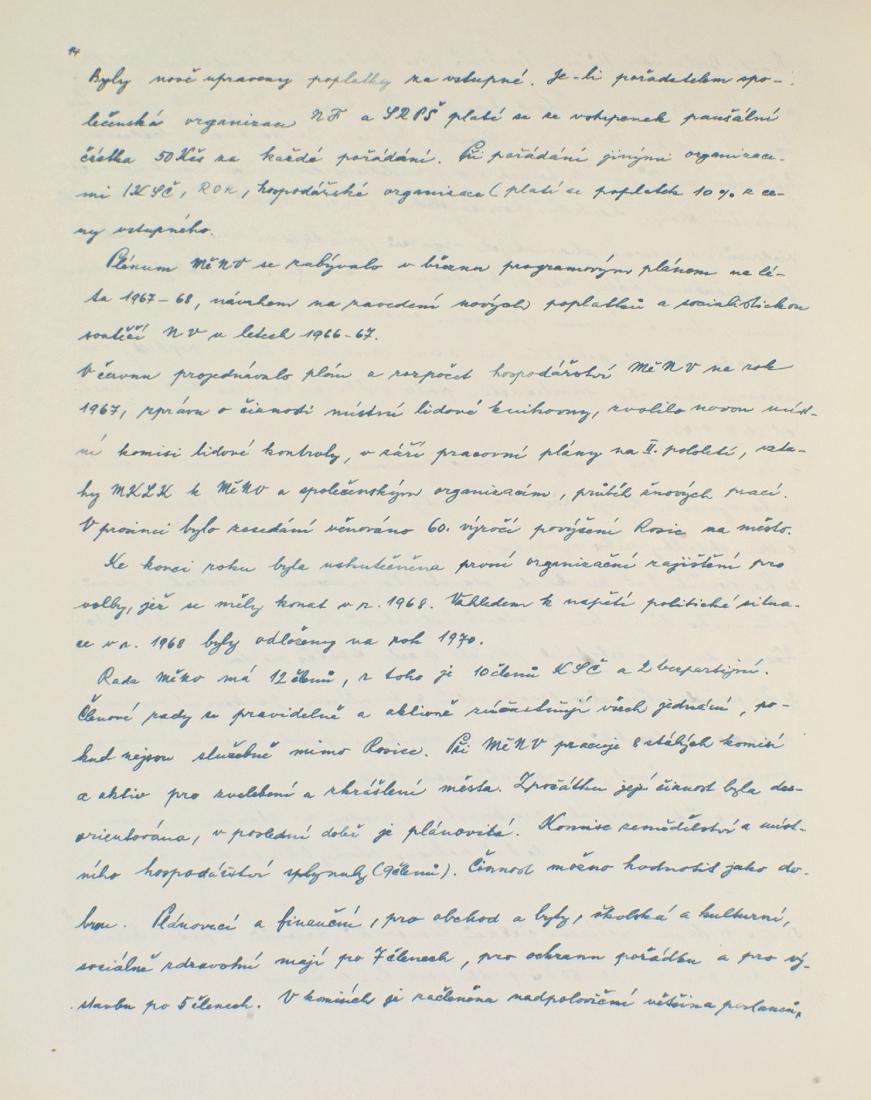 14
Byly nově upraveny poplatky za vstupné. Je-li pořadatelem spo-
lečenská organizace NF a SRPŠ platí se ze vstupenek paušální
částka 50 Kčs za každé pořádání. Při pořádání jinými organizace-
mi /KSČ, ROH, hospodářské organizace( platí se poplatek 10 % z ce-
ny vstupného.
Plénum MěNV se zabývalo v březnu programovým plánem na lé-
ta 1967-68, návrhem na zavedení nových poplatků a socialistickou
soutěží NV v letech 1966-67.
V červnu projednávalo plán a rozpočet hospodářství MěNV na rok
1967, zprávu o činnosti místní lidové knihovny, zvolilo novou míst-
ní komisi lidové kontroly, v září pracovní plány na II. pololetí, vzta-
hy MKLK k MěNV a společenským organizacím, průběh žňových prací.
V prosinci bylo zasedání věnováno 60. výročí povýšení Rosic na město.
Ke konci roku byla uskutečněna první organizační zajištění pro
volby, jež se měly konat v r. 1968. Vzhledem k napětí politické situa-
ce v r. 1968 byly odloženy na rok 1970.
Rada MěNV má 12 členů, z toho je 10 členů KSČ a 2 bezpartijní.
Členové rady se pravidelně a aktivně zúčastňují všech jednání, po-
kud nejsou služebně mimo Rosice. Při MěNV pracuje 8 stálých komisí
a aktiv pro zvelebení a zkrášlení města. Zpočátku její činnost byla des-
orientována, v poslední době je plánovitá. Komise zemědělství a míst-
ního hospodářství splynuly (9 členů). Činnost možno hodnotit jako do-
brou. Plánovací a finanční, pro obchod a byty, školská a kulturní,
sociálně zdravotní mají po 7 členech, pro ochranu pořádku a pro vý-
stavbu po 5 členech. V komisích je začleněna nadpoloviční většina poslanců,